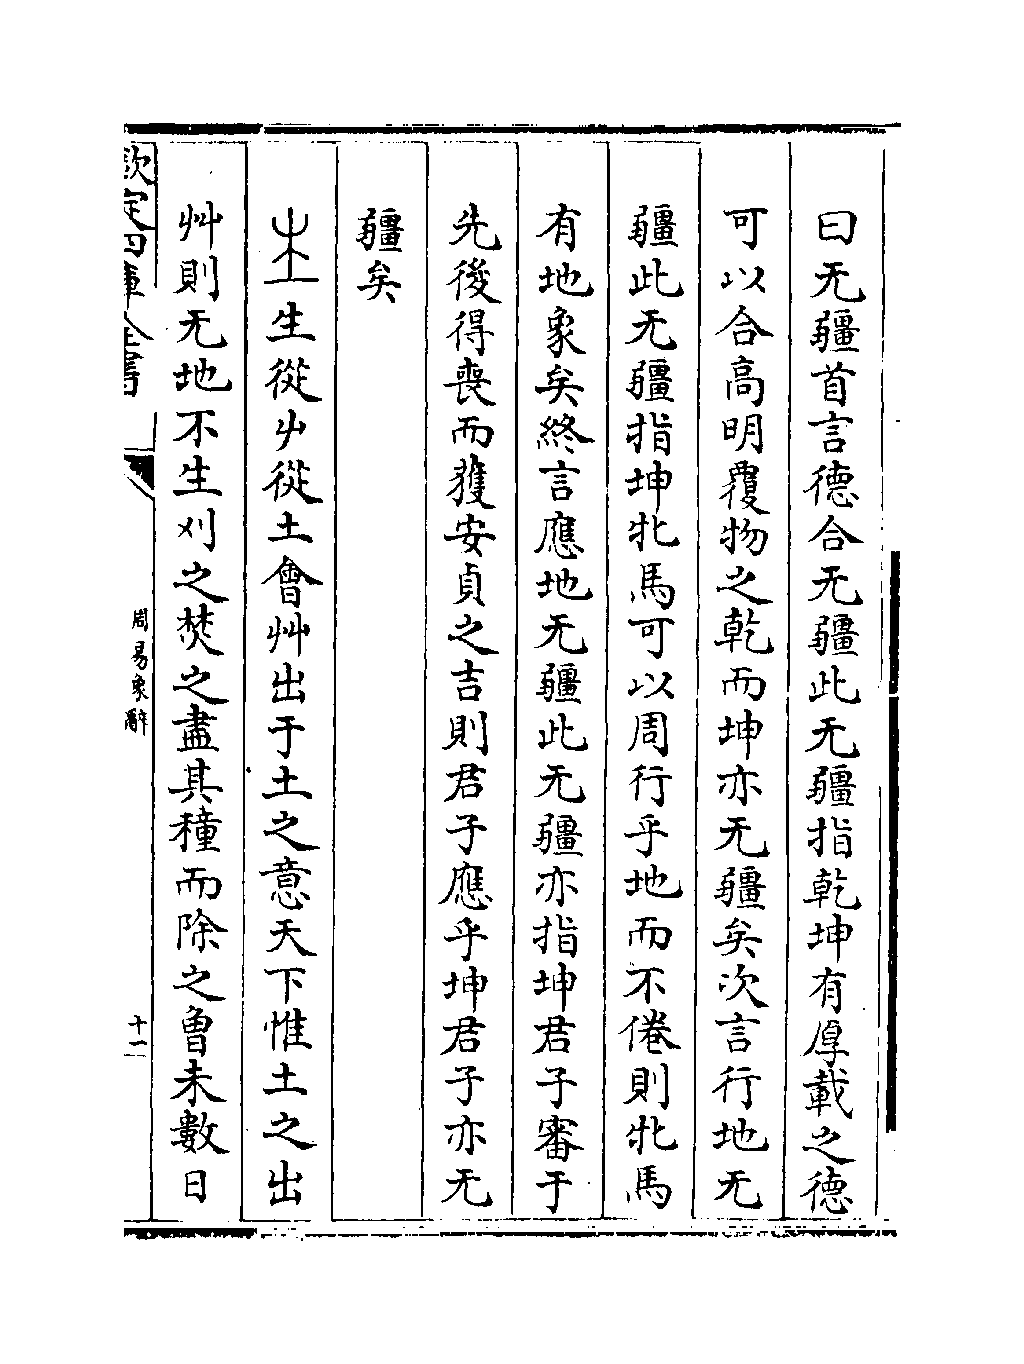 曰无疆首言德合无疆此无疆指乾坤有厚載之德
可以合高明覆物之乾而坤亦无疆矣次言行地无
疆此无疆指坤牝馬可以周行乎地而不倦則牝馬
有地象矣終言應地无疆此无疆亦指坤君子審于
先後得喪而獲安貞之吉則君子應乎坤君子亦无
疆矣
生從屮從土會艸出于土之意天下惟土之出
艸則无地不生刈之焚之盡其種而除之曾未數日
欽定四庫全書
周易象辭
十一